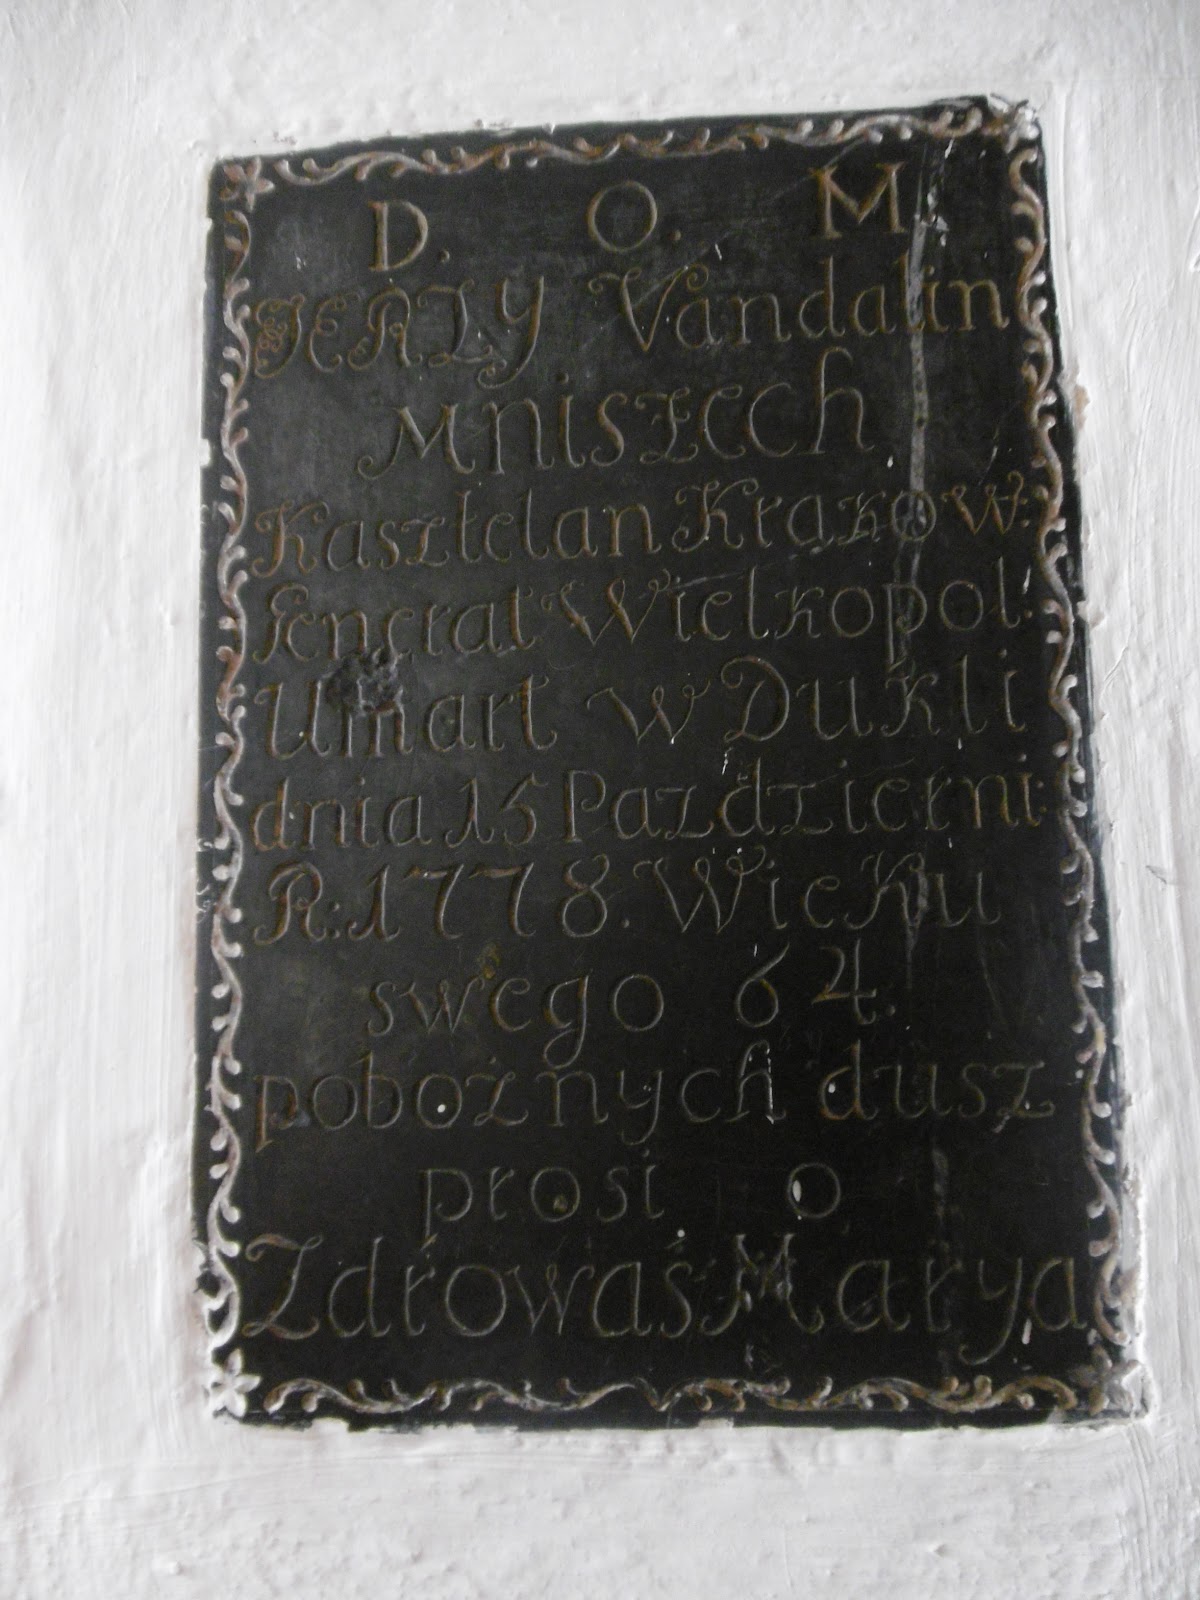 D. O. M
JERZY Vandalin
Mniszech
Kasztelan Krakow:
Generał Wielkopol:
Umarł w Dukli
dnia 15 Pazdzierni:
R: 1778. Wieku
swego 64.
pobożnych dusz
prosi o
Zdrowaś Marya